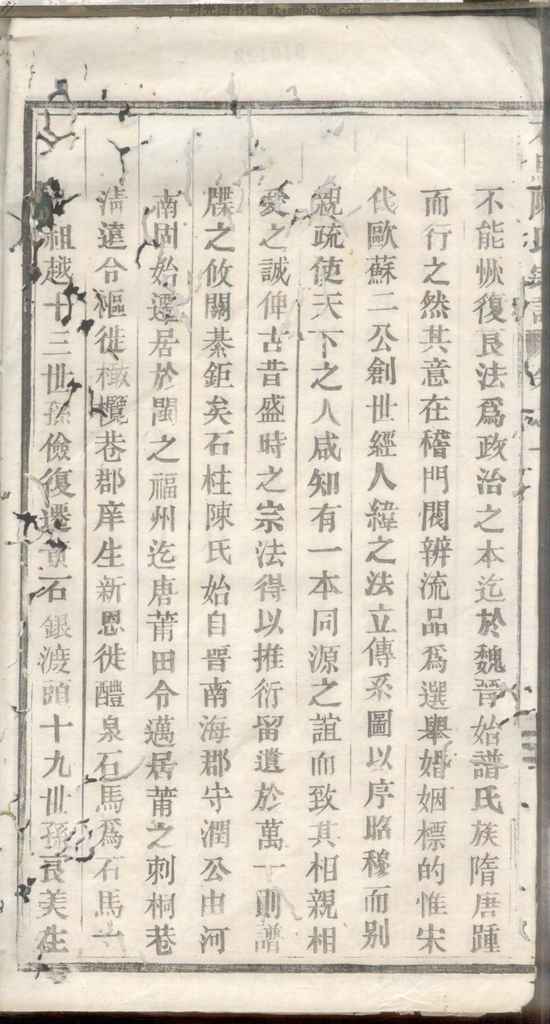 不能恢復良法爲政治之本迄於魏晉始譜氏族隋唐踵
而行之然其意在稽門閥辨流品爲選舉婚姻標的惟宋
代歐蘇二公創世經人緯之法立傳系圖以序昭穆而别
親疏使天下之人咸知有一本同源之誼而致其相親相
愛之誠俾古昔盛時之宗法得以推衍留遺於萬一則譜
牒之攸關綦鉅矣石柱陳氏始自晉南海郡守潤公由河
南固始遷居於閩之福州迄唐莆田令邁居莆之刺桐巷
清遠令樞徙橄欖巷郡庠生新恩徙醴泉石馬爲石馬
祖越十三世孫儉復遷黃石銀渡頭十九世孫良美生